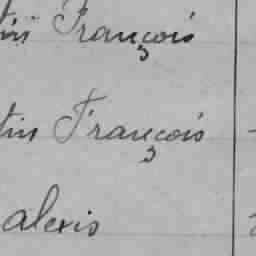 tin François
tin François
alexis